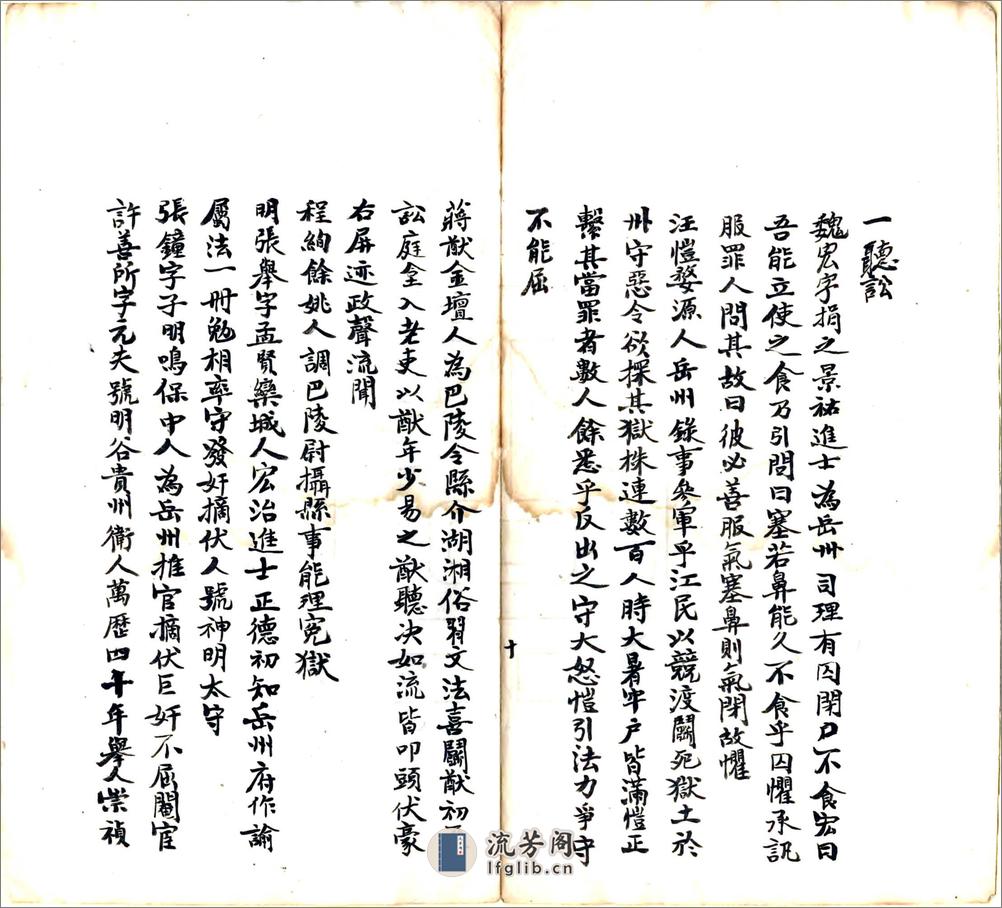 一聽訟
魏宏字捐之景祐進士為岳州司理有囚閉口不食宏曰
吾能立使之食乃引問曰塞若鼻能久不食乎囚懼承訊
服罪人問其故曰彼必善服氣塞鼻則氣閉故懼
汪愷婺源人岳州錄事參軍平江民以競渡鬭死獄土於
卅守惡令欲探其獄株連數百人時大暑牢户皆滿愷正
繫其當罪者數人餘悉乎反出之守大怒愷引法力爭守
不能屈
蔣猷金壇人為巴陵令縣介湖湘俗習文法喜鬭猷初
訟庭全入老吏以猷年少易之猷聽决如流皆叩頭伏豪
右屏迹政聲流聞
程絢餘姚人調巴陵尉攝縣事能理寃獄
明張舉字孟賢欒城人宏治進士正德初知岳州府作諭
屬法一冊勉相率守發奸摘伏人號神明太守
張鐘字子明鳴保中人為岳州推官摘伏巨奸不屈閹宦
許善所字元夫號明谷貴州衛人萬歷四年舉人崇禎
十
流芳阁
lfglib.cn